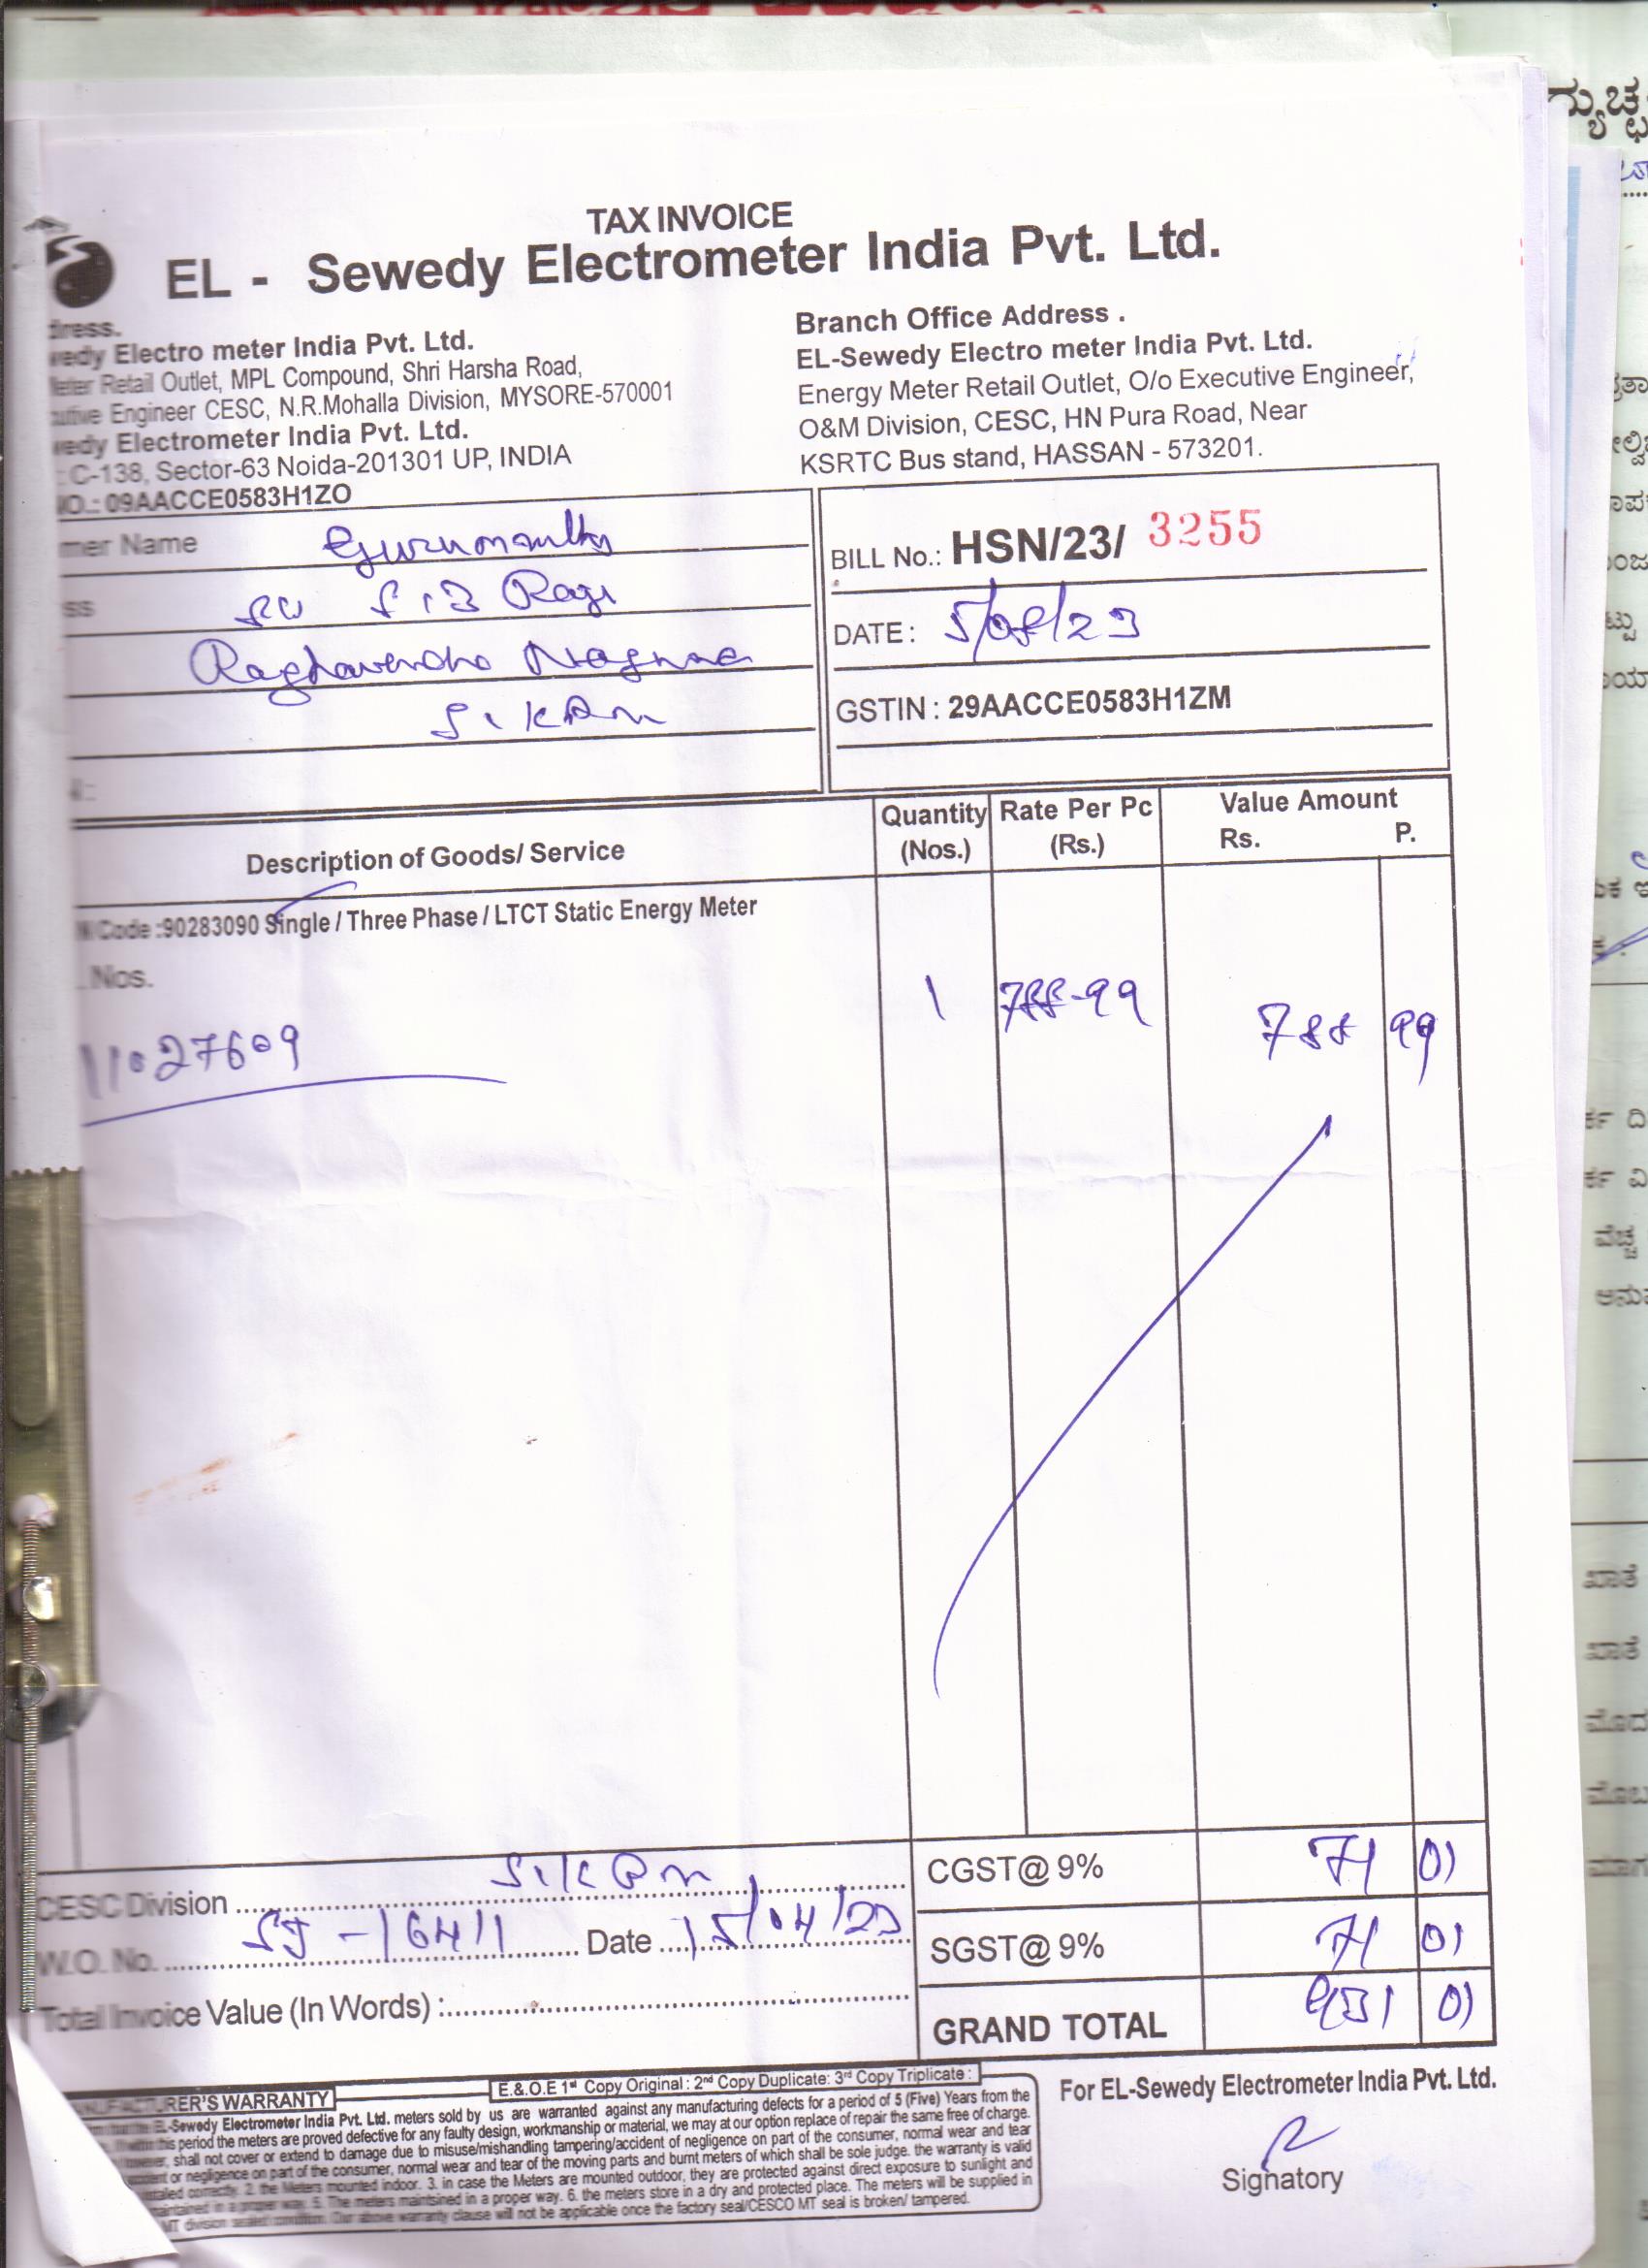 TAX INVOICE
EL - Sewedy Electrometer India Pvt. Ltd.
dress.
wedy Electro meter India Pvt. Ltd.
Meter Retail Outlet, MPL Compound, Shri Harsha Road,
utive Engineer CESC, N.R.Mohalla Division, MYSORE-570001
wedy Electrometer India Pvt. Ltd.
: C-138, Sector-63 Noida-201301 UP, INDIA
NO.: 09AACCE0583H1ZO
Branch Office Address .
EL-Sewedy Electro meter India Pvt. Ltd.
Energy Meter Retail Outlet, O/o Executive Engineer,
O&M Division, CESC, HN Pura Road, Near
KSRTC Bus stand, HASSAN - 573201.
mer Name
ss
Raghavendra
BILL No.: HSN/23/ 3255
DATE : 5/08/23
GSTIN : 29AACCE0583H1ZM
Description of Goods/ Service
Quantity (Nos.)
Rate Per Pc (Rs.)
Value Amount
Rs. P.
Code :90283090 Single / Three Phase / LTCT Static Energy Meter
. Nos.
11027609
1 788-99 788 99
CESC Division
W.O. No. SJ-16411 Date 15/04/23
Total Invoice Value (In Words) :
CGST@ 9% 71 01
SGST@ 9% 71 01
GRAND TOTAL 931 01
E.& O.E 1st Copy Original : 2nd Copy Duplicate: 3rd Copy Triplicate :
NUFACTURER'S WARRANTY
EL-Sewedy Electrometer India Pvt. Ltd. meters sold by us are warranted against any manufacturing defects for a period of 5 (Five) Years from the
this period the meters are proved defective for any faulty design, workmanship or material, we may at our option replace of repair the same free of charge.
shall not cover or extend to damage due to misuse/mishandling tampering/accident of negligence on part of the consumer, normal wear and tear
or negligence on part of the consumer, normal wear and tear of the moving parts and burnt meters of which shall be sole judge. the warranty is valid
correctly. 2. the Meters mounted indoor. 3. in case the Meters are mounted outdoor, they are protected against direct exposure to sunlight and
in a proper way. 5. The meters maintsined in a proper way. 6. the meters store in a dry and protected place. The meters will be supplied in
MT division sealed condition. Our above warranty clause will not be applicable once the factory seal/CESCO MT seal is broken/ tampered.
For EL-Sewedy Electrometer India Pvt. Ltd.
Signatory